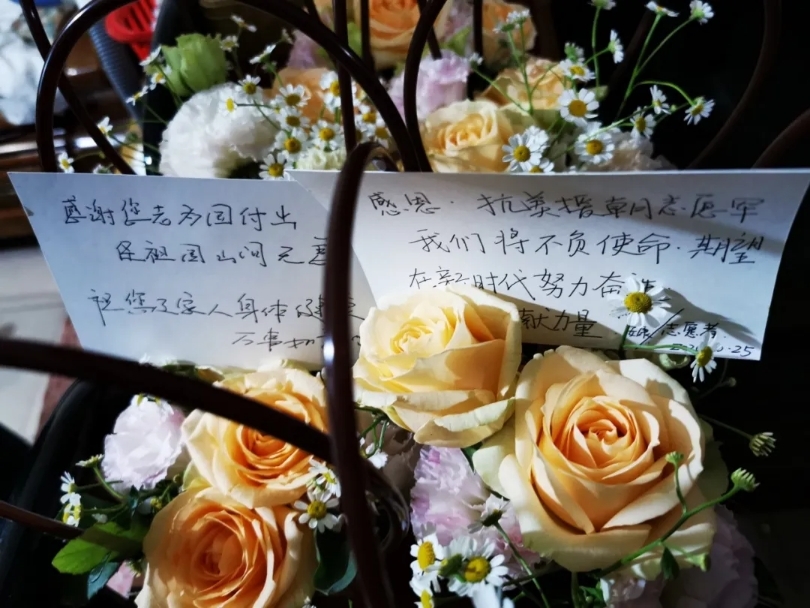 感谢您去为国付出
祖国山河无
祝您及家人身体健康
万事如
感恩·抗美援朝同志愿军
我们将不负使命·期望
在新时代努力奋
献力量
志愿者
.25